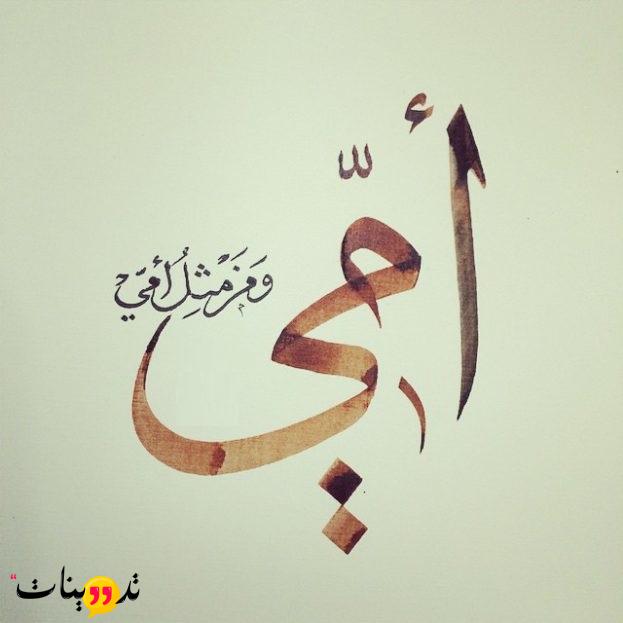 أمّي
وَمَن مِثلُ أُمّي
تدوينات